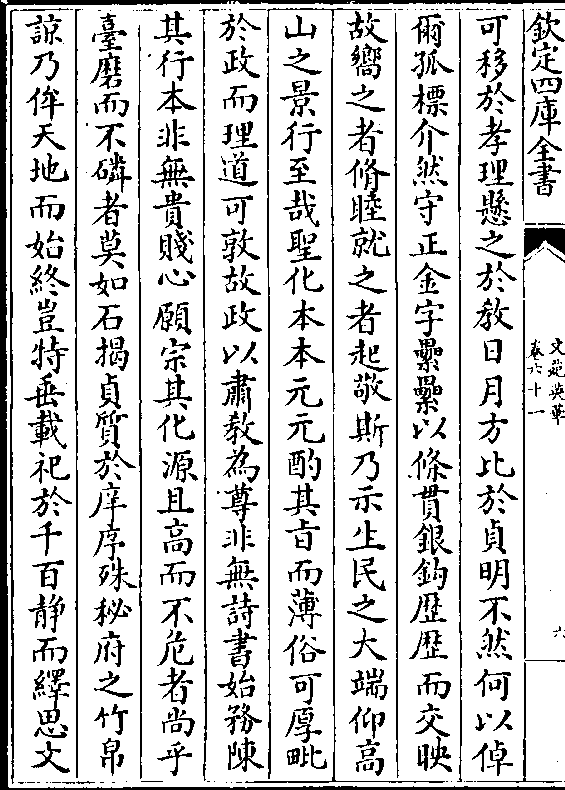 欽定四庫全書
文苑英華
卷六十一
六
可移於孝理懸之於教日月方比於貞明不然何以倬
爾孤標介然守正金字纍纍以條貫銀鈎歴歴而交映
故嚮之者脩睦就之者起敬斯乃示生民之大端仰高
山之景行至哉聖化本本元元酌其㫖而薄俗可厚毗
於政而理道可敦故政以肅教為尊非無詩書始務陳
其行本非無貴賤心願宗其化源且高而不危者尚乎
臺磨而不磷者莫如石揭貞質於庠序殊秘府之竹帛
諒乃侔天地而始終豈特垂載祀於千百静而繹思文